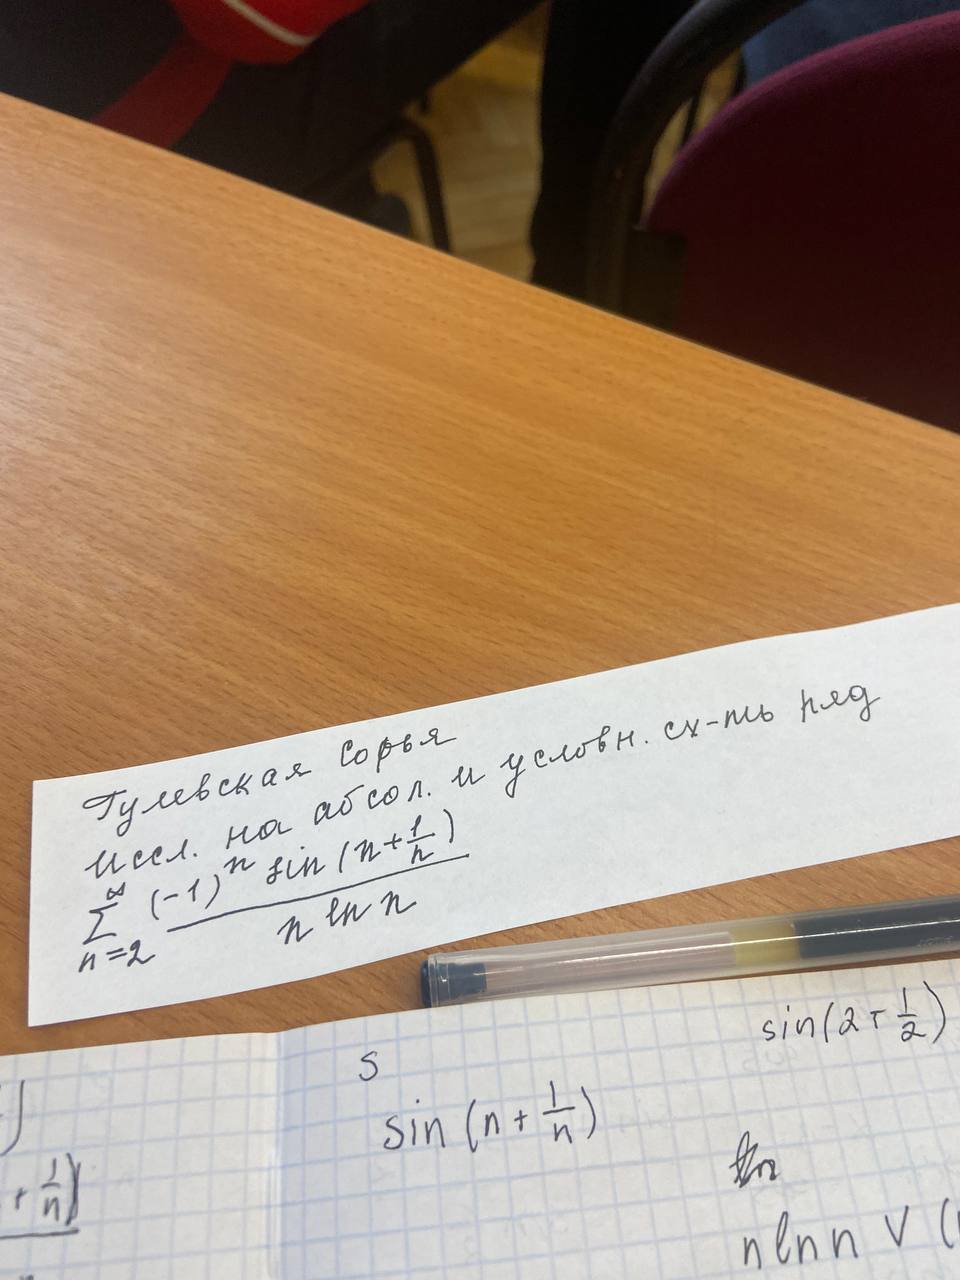 Гулевская Софья
иссл. на абсол. и условн. сх-ть ряд
∞
∑ (-1)ⁿ sin (n + 1/n)
n=2 n ln n
sin(2+1/2)
S
sin (n + 1/n)
+ 1/n)
n ln n ∨ (